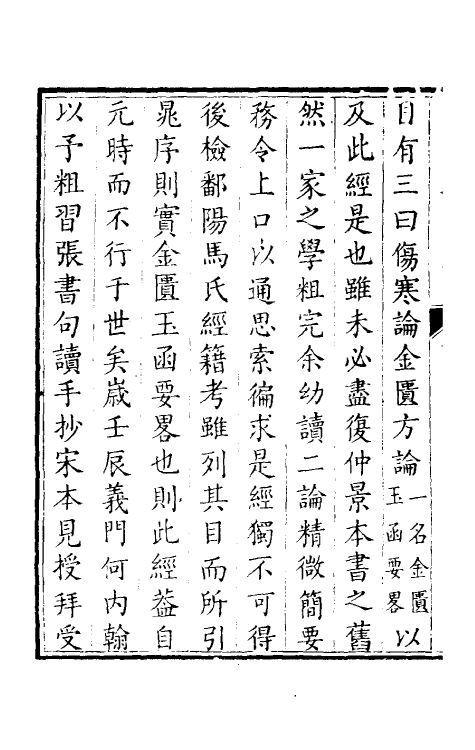 目有三曰傷寒論金匱方論一名金匱玉函要畧以
及此經是也雖未必盡復仲景本書之舊
然一家之學粗完余幼讀二論精微簡要
務令上口以通思索徧求是經獨不可得
後檢鄱陽馬氏經籍考雖列其目而所引
晁序則實金匱玉函要畧也則此經葢自
元時而不行于世矣歲壬辰義門何内翰
以予粗習張書句讀手抄宋本見授拜受